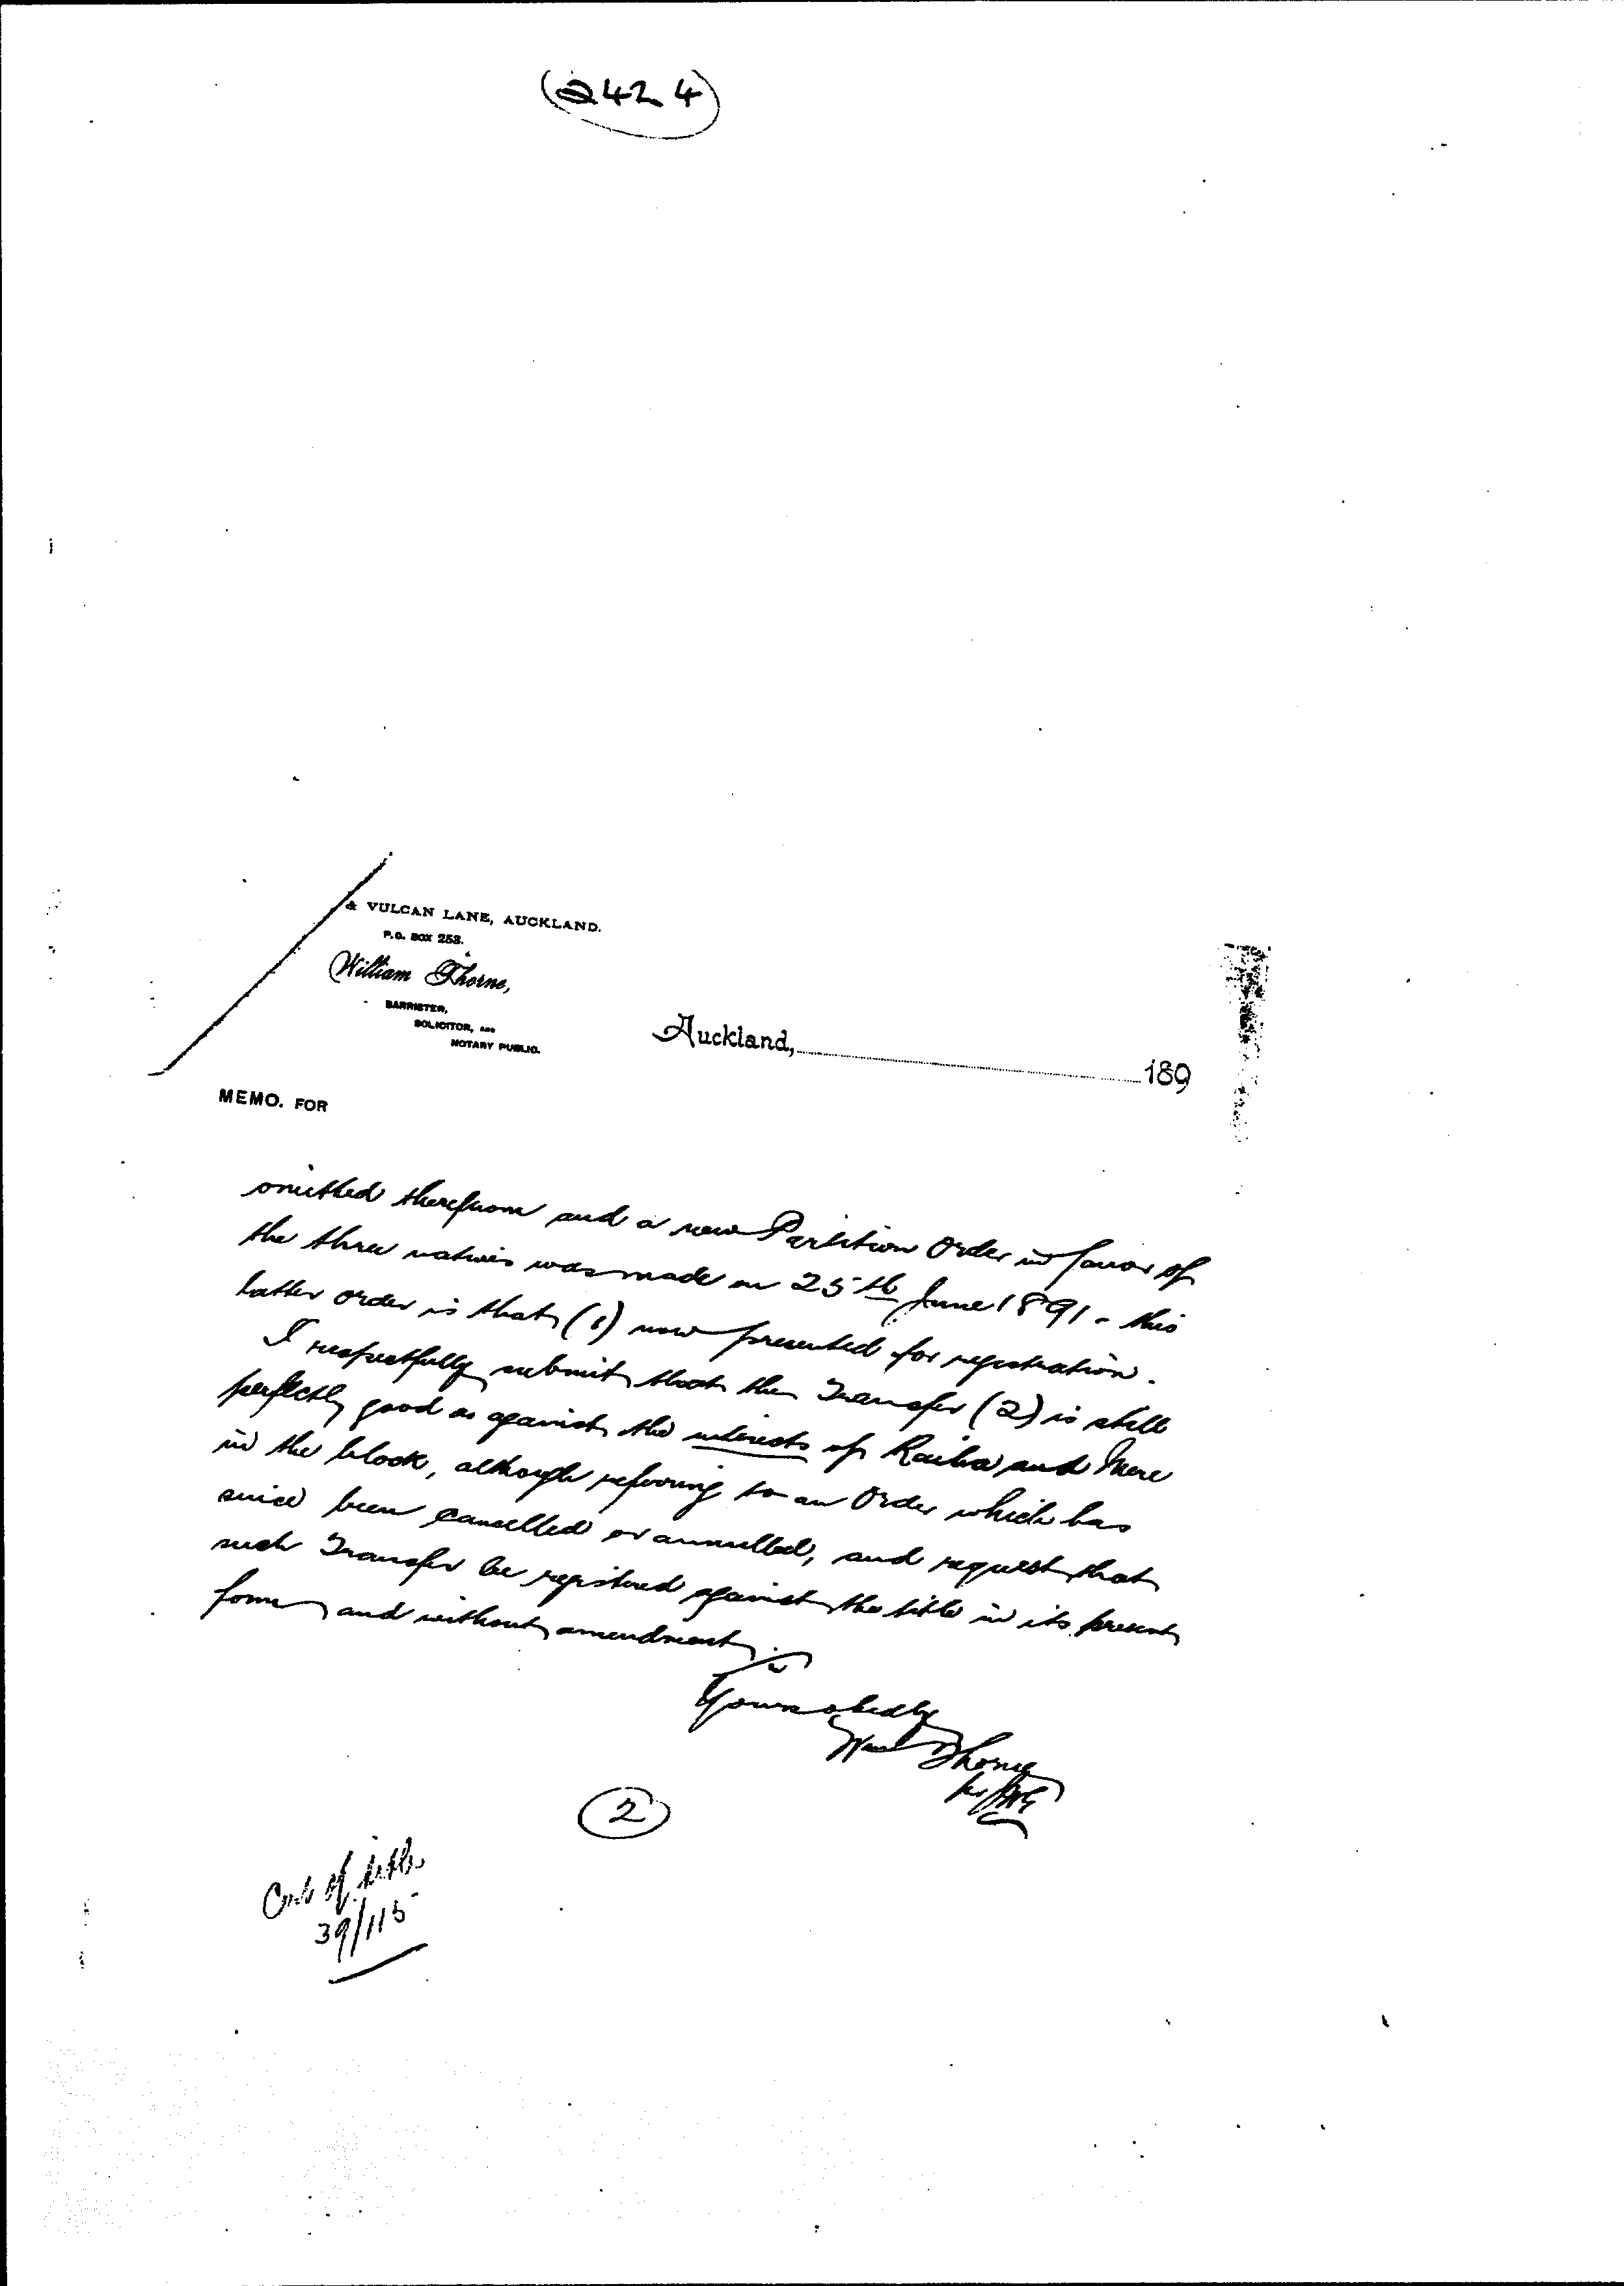 (242 4)
& VULCAN LANE, AUCKLAND.
P.O. BOX 253.
William Thorne,
BARRISTER,
SOLICITOR, AND
NOTARY PUBLIC.
Auckland, 189
MEMO. FOR
omitted therefrom and a new Partition Order in favor of
the three natives was made on 25th June 1891 - this
latter order is that (1) now presented for registration.
I respectfully submit that the Transfer (2) is still
perfectly good as against the interests of Raiha and Mere
in the block, although referring to an Order which has
since been cancelled or annulled, and request that
such Transfer be registered against the title in its present
form and without amendment.
Yours obedly
Wm Thorne
2
Cert of title
39/115